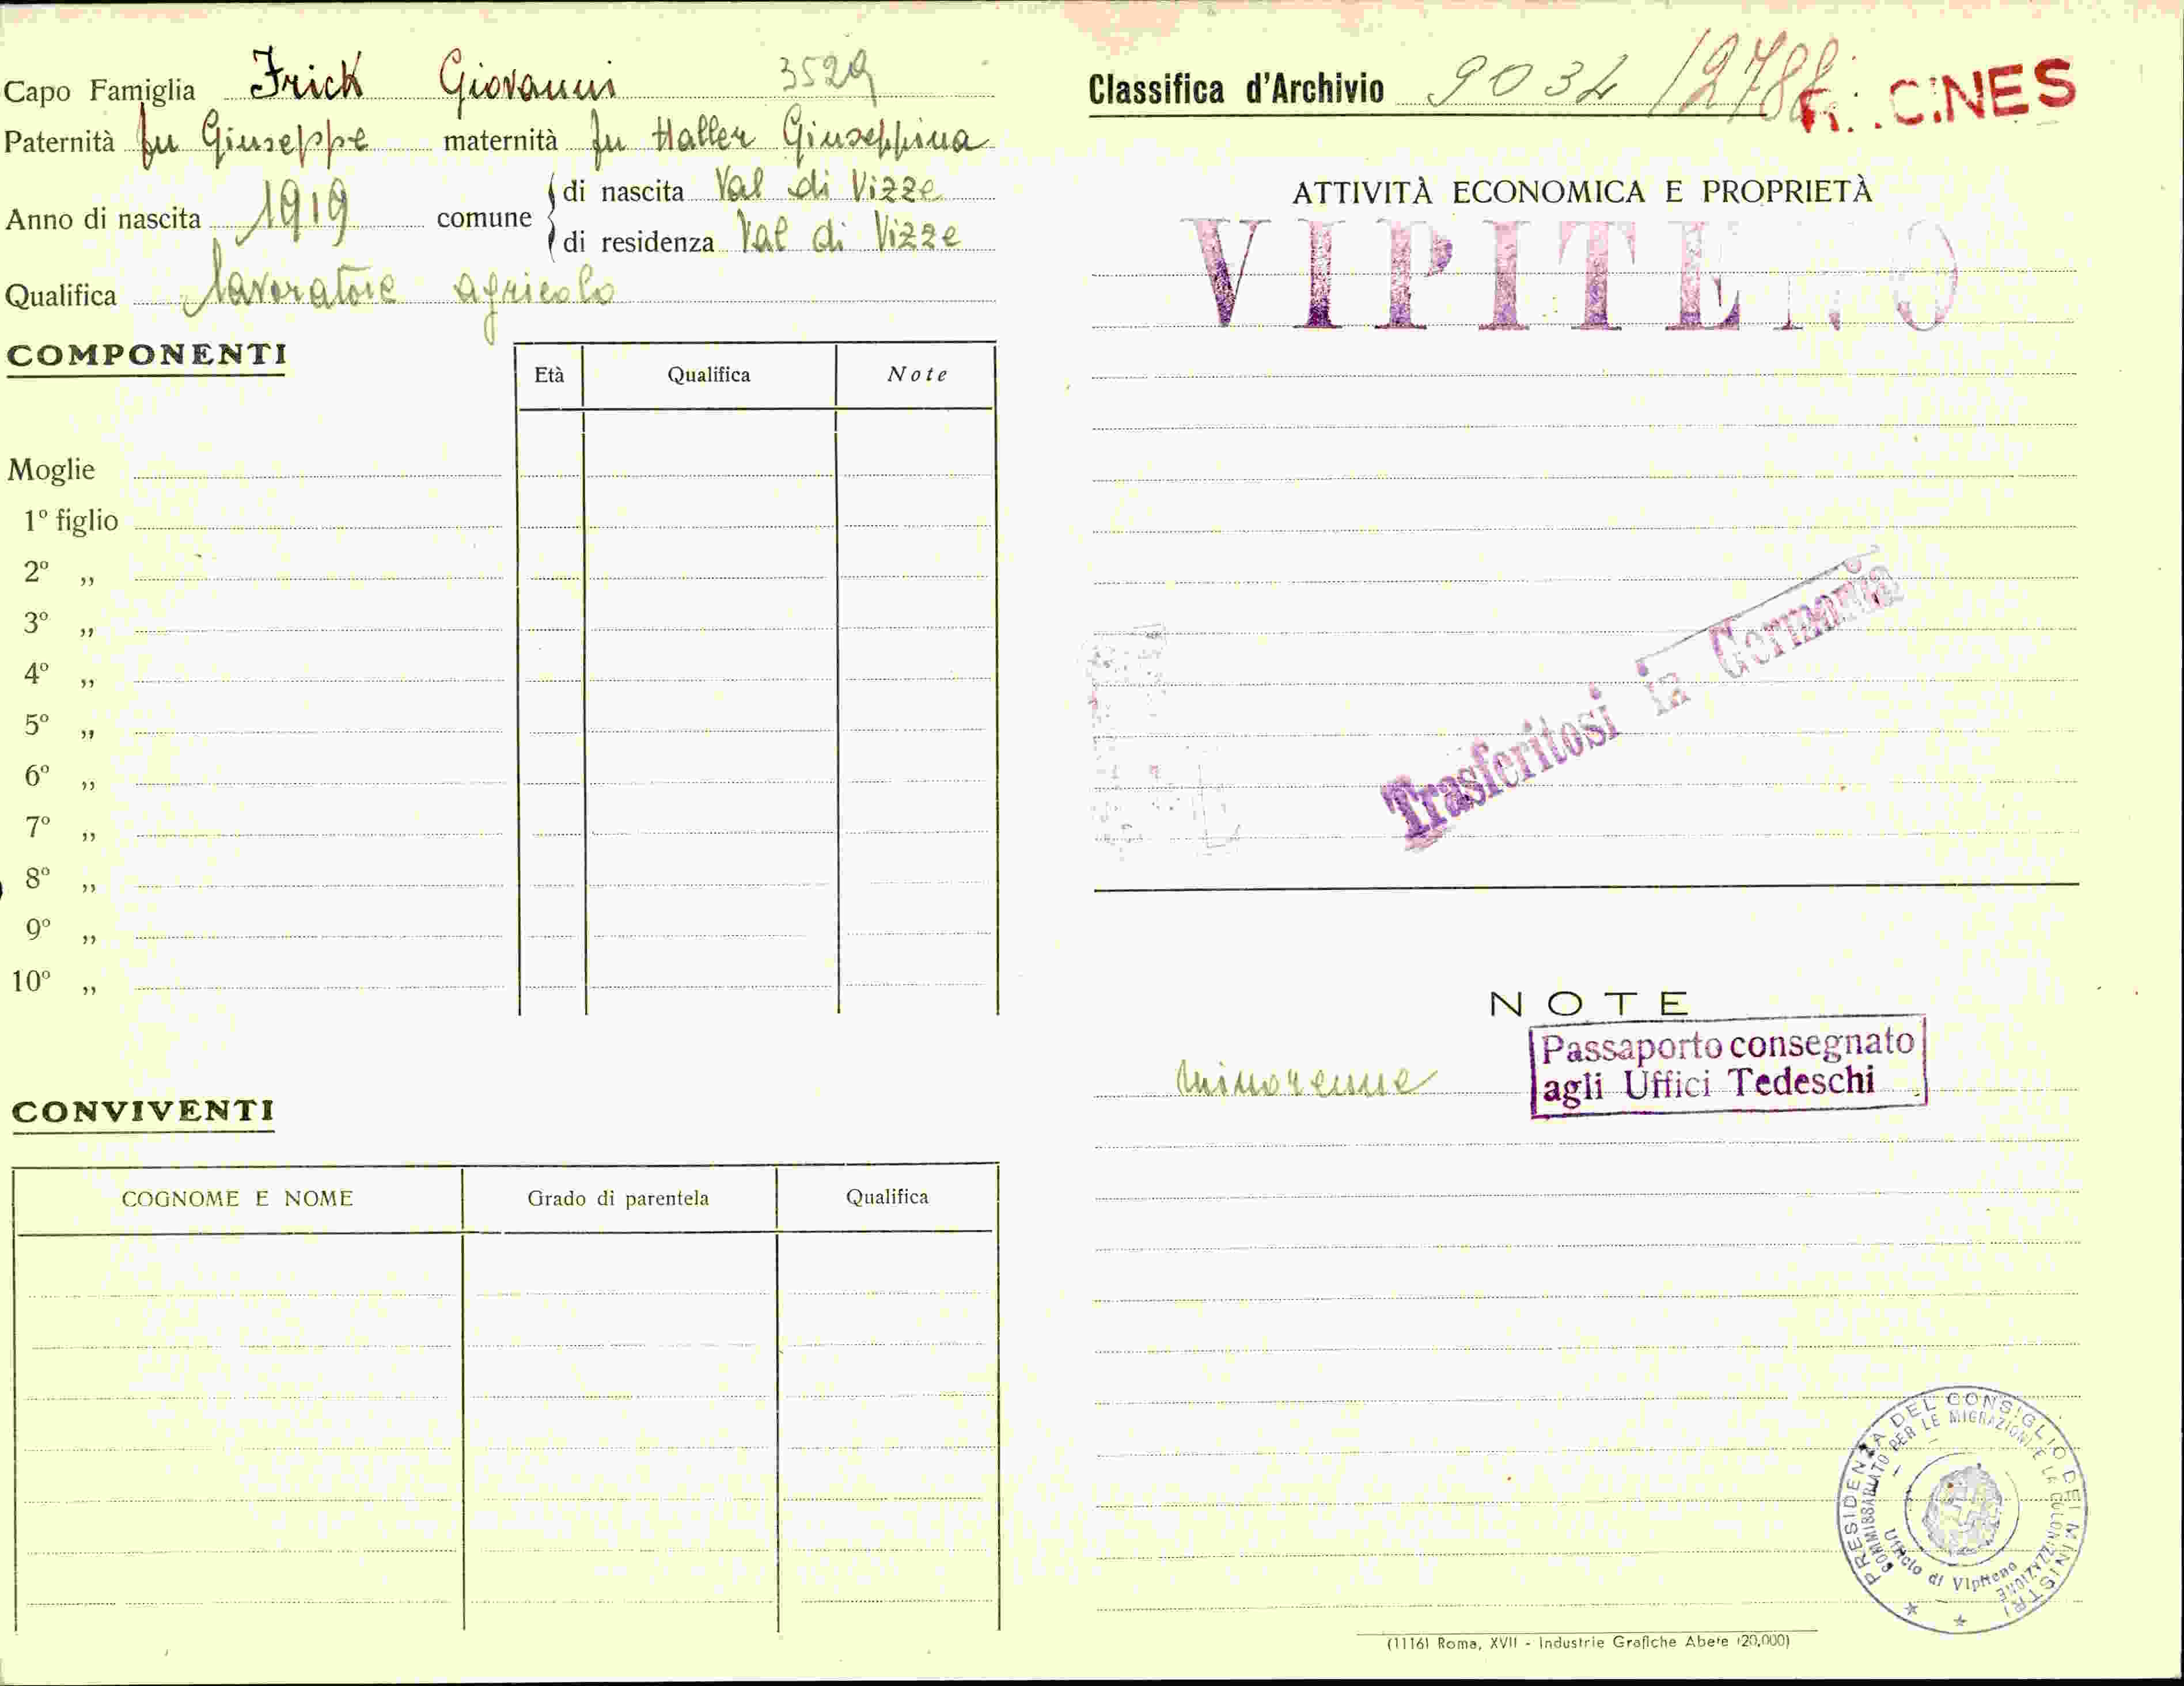 Capo Famiglia Frick Giovanni 3529
Paternità fu Giuseppe maternità fu Haller Giuseppina
Anno di nascita 1919 comune
di nascita Val di Vizze
di residenza Val di Vizze
Qualifica lavoratore agricolo
COMPONENTI
Età Qualifica Note
Moglie
1º figlio
2º ,,
3º ,,
4º ,,
5º ,,
6º ,,
7º ,,
8º ,,
9º ,,
10º ,,
CONVIVENTI
COGNOME E NOME Grado di parentela Qualifica
Classifica d'Archivio 9034 /2788
ATTIVITÀ ECONOMICA E PROPRIETÀ
VIPITENO
Trasferitosi in Germania
NOTE
minorenne
Passaporto consegnato
agli Uffici Tedeschi
PRESIDENZA DEL CONSIGLIO DEI MINISTRI
COMMISSARIATO PER LE MIGRAZIONI E LA COLONIZZAZIONE
Ufficio di Vipiteno
(1116) Roma, XVII - Industrie Grafiche Abete (20,000)